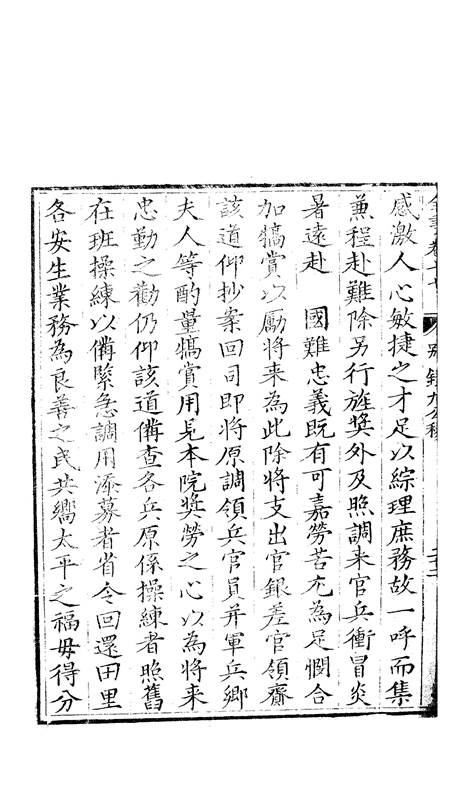 感激人心敏捷之才足以綜理庶務故一呼而集
兼程赴難除另行旌獎外及照調来官兵衝冒炎
暑遠赴　國難忠義既有可嘉勞苦尤為足憫合
加犒賞以勵将来為此除将支出官銀差官領齎
該道仰抄案回司即将原調領兵官員并軍兵鄉
夫人等酌量犒賞用見本院奬勞之心以為将来
忠勤之勸仍仰該道備查各兵原係操練者照舊
在班操練以備緊急調用添募者省令回還田里
各安生業務為良善之民共嚮太平之福毋得分